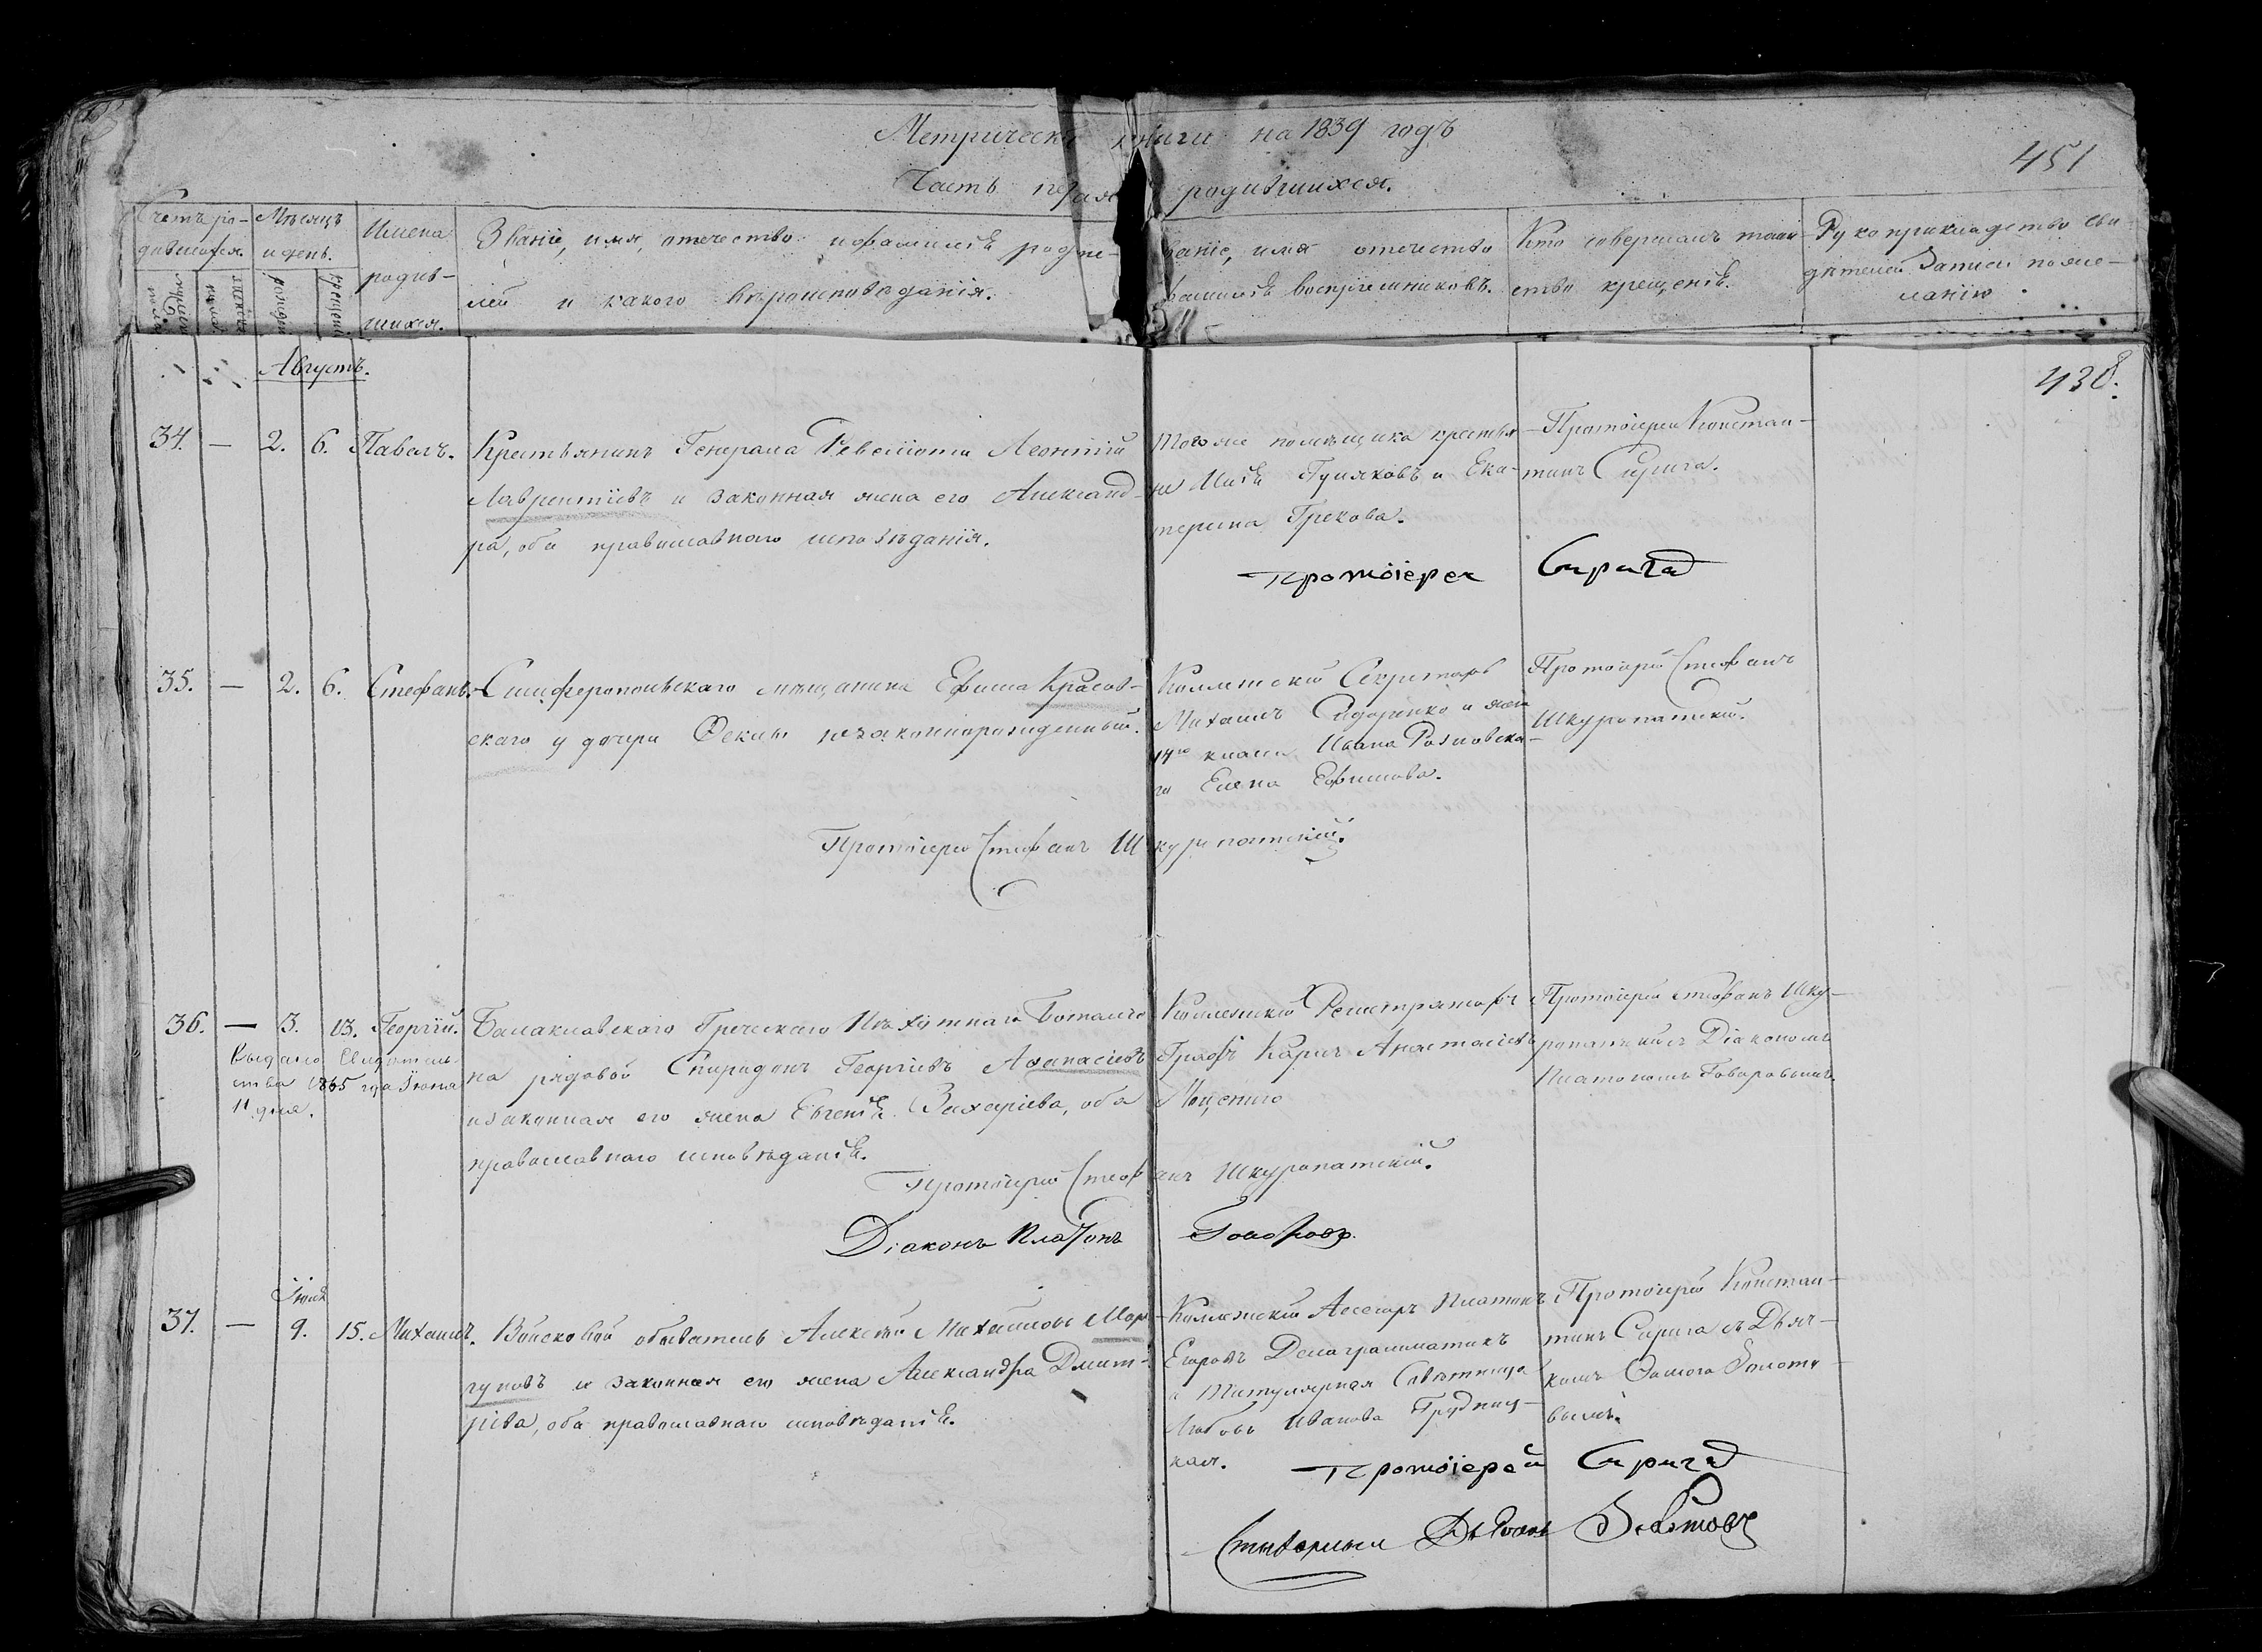 Метрической книги на 1839 годъ
451
Часть первая родившихся.
Счетъ ро-
дившихся.
Мѣсяцъ
и день.
Имена
родив-
шихся.
Званіе, имя, отечество и фамилія родите-
лей и какого вѣроисповѣданія.
Званіе, имя отечество
фамилія воспріемниковъ.
Кто совершалъ таин-
ство крещенія.
Рукоприкладство сви-
дѣтелей записи по же-
ланію.
Августъ.
438.
34. — 2. 6. Павелъ.
Крестьянинъ Генерала Ревеліоти Леонтій
Лаврентіевъ и законная жена его Александ-
ра, оба православнаго исповѣданія.
того же помѣщика крестья-
не Илія и Ека-
терина Грекова.
Протоіерей Констан-
тинъ Сирига.
Протоіерей Сирига
35. — 2. 6. Стефанъ.
Симферопольскаго мѣщанина Ефима Красов-
скаго у дочери Феклы незаконнорожденный.
Коллежскій Секретарь
Михаилъ Сидоренко и жена
14го класса Ивана Розновска-
го Елена Ефимова.
Протоіерей Стефанъ
Шкуропатскій.
Протоіерей Стефанъ Шкуропатскій.
36. — 3. 13. Георгій.
Выдано Свидѣтель-
ство 1865 года Іюна
11 дня.
Балаклавскаго Греческаго Пѣхотнаго Баталіо-
на рядовой Спиридонъ Георгіевъ Афанасіевъ
и законная его жена Евгенія Захаріева, оба
православнаго исповѣданія.
Коллежскій Регистраторъ
Графъ Карлъ Анастасіевъ
Мощениго
Протоіерей Стефанъ Шку-
ропатскій съ Діакономъ
Платономъ Говоровымъ.
Протоіерей Стефанъ Шкуропатскій.
Діаконъ Платонъ Говоровъ.
Іюля
37. — 9. 15. Михаилъ.
Войсковой обыватель Алексѣй Михайловъ Мор-
гуновъ и законная его жена Александра Дмит-
ріева, оба православнаго исповѣданія.
Коллежскій Асесоръ Платонъ
Егоровъ Домаграмматикъ
и Титулярная Совѣтница
Любовь Иванова Грудниц-
кая.
Протоіерей Констан-
тинъ Сирига съ Дьяч-
комъ Фомою Золото-
вымъ.
Протоіерей Сирига